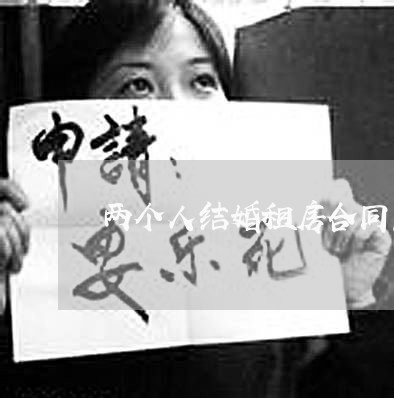 申請：
两个人结婚租房合同
乐死